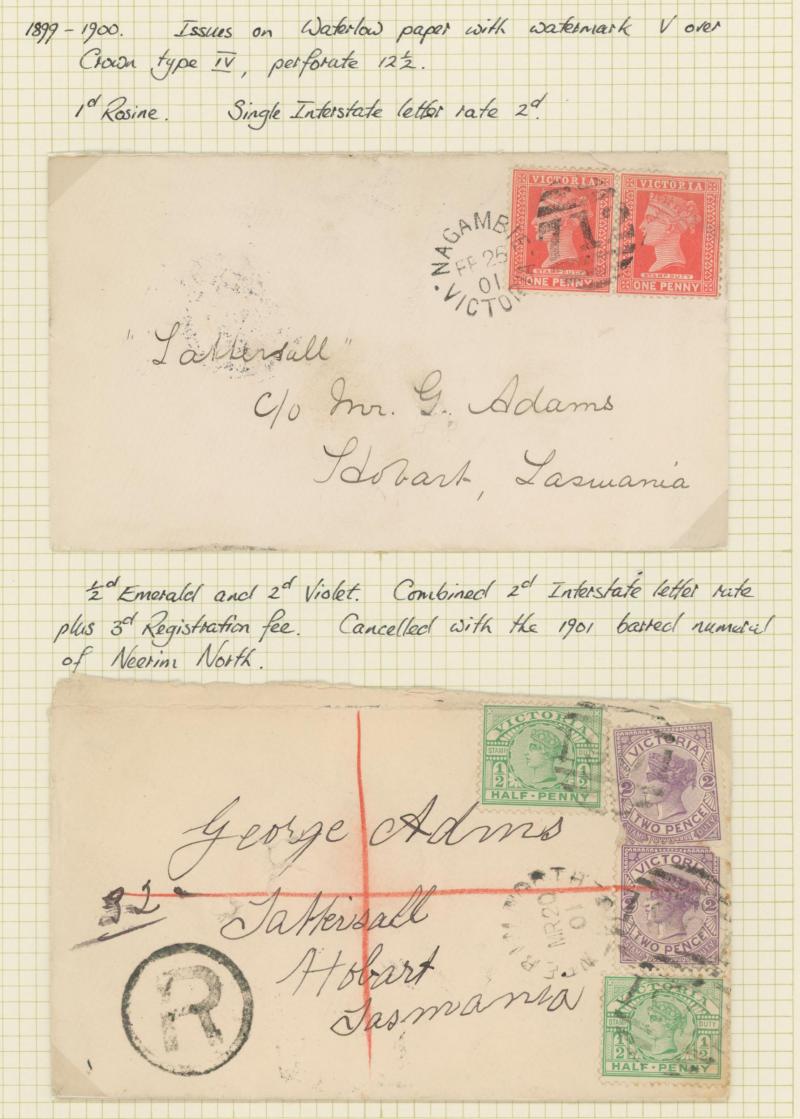 1899 - 1900. Issues on Waterlow paper with watermark V over
Crown type IV, perforate 12½.
1d Rosine. Single Interstate letter rate 2d.
VICTORIA
STAMP DUTY
ONE PENNY
VICTORIA
STAMP DUTY
ONE PENNY
71
NAGAMBIE
FE 25
01
VICTORIA
"Tattersall"
c/o Mr. G. Adams
Hobart, Tasmania
½d Emerald and 2d Violet. Combined 2d Interstate letter rate
plus 3d Registration fee. Cancelled with the 1901 barred numeral
of Neerim North.
VICTORIA
STAMP
½ ½
HALF-PENNY
VICTORIA
2 2
TWO PENCE
VICTORIA
2
TWO PENCE
George Adms
32
Tattersall
Hobart
Tasmania
RIM NORTH
MR 20
01
R
VICTORIA
STAMP DUTY
½ ½
HALF-PENNY